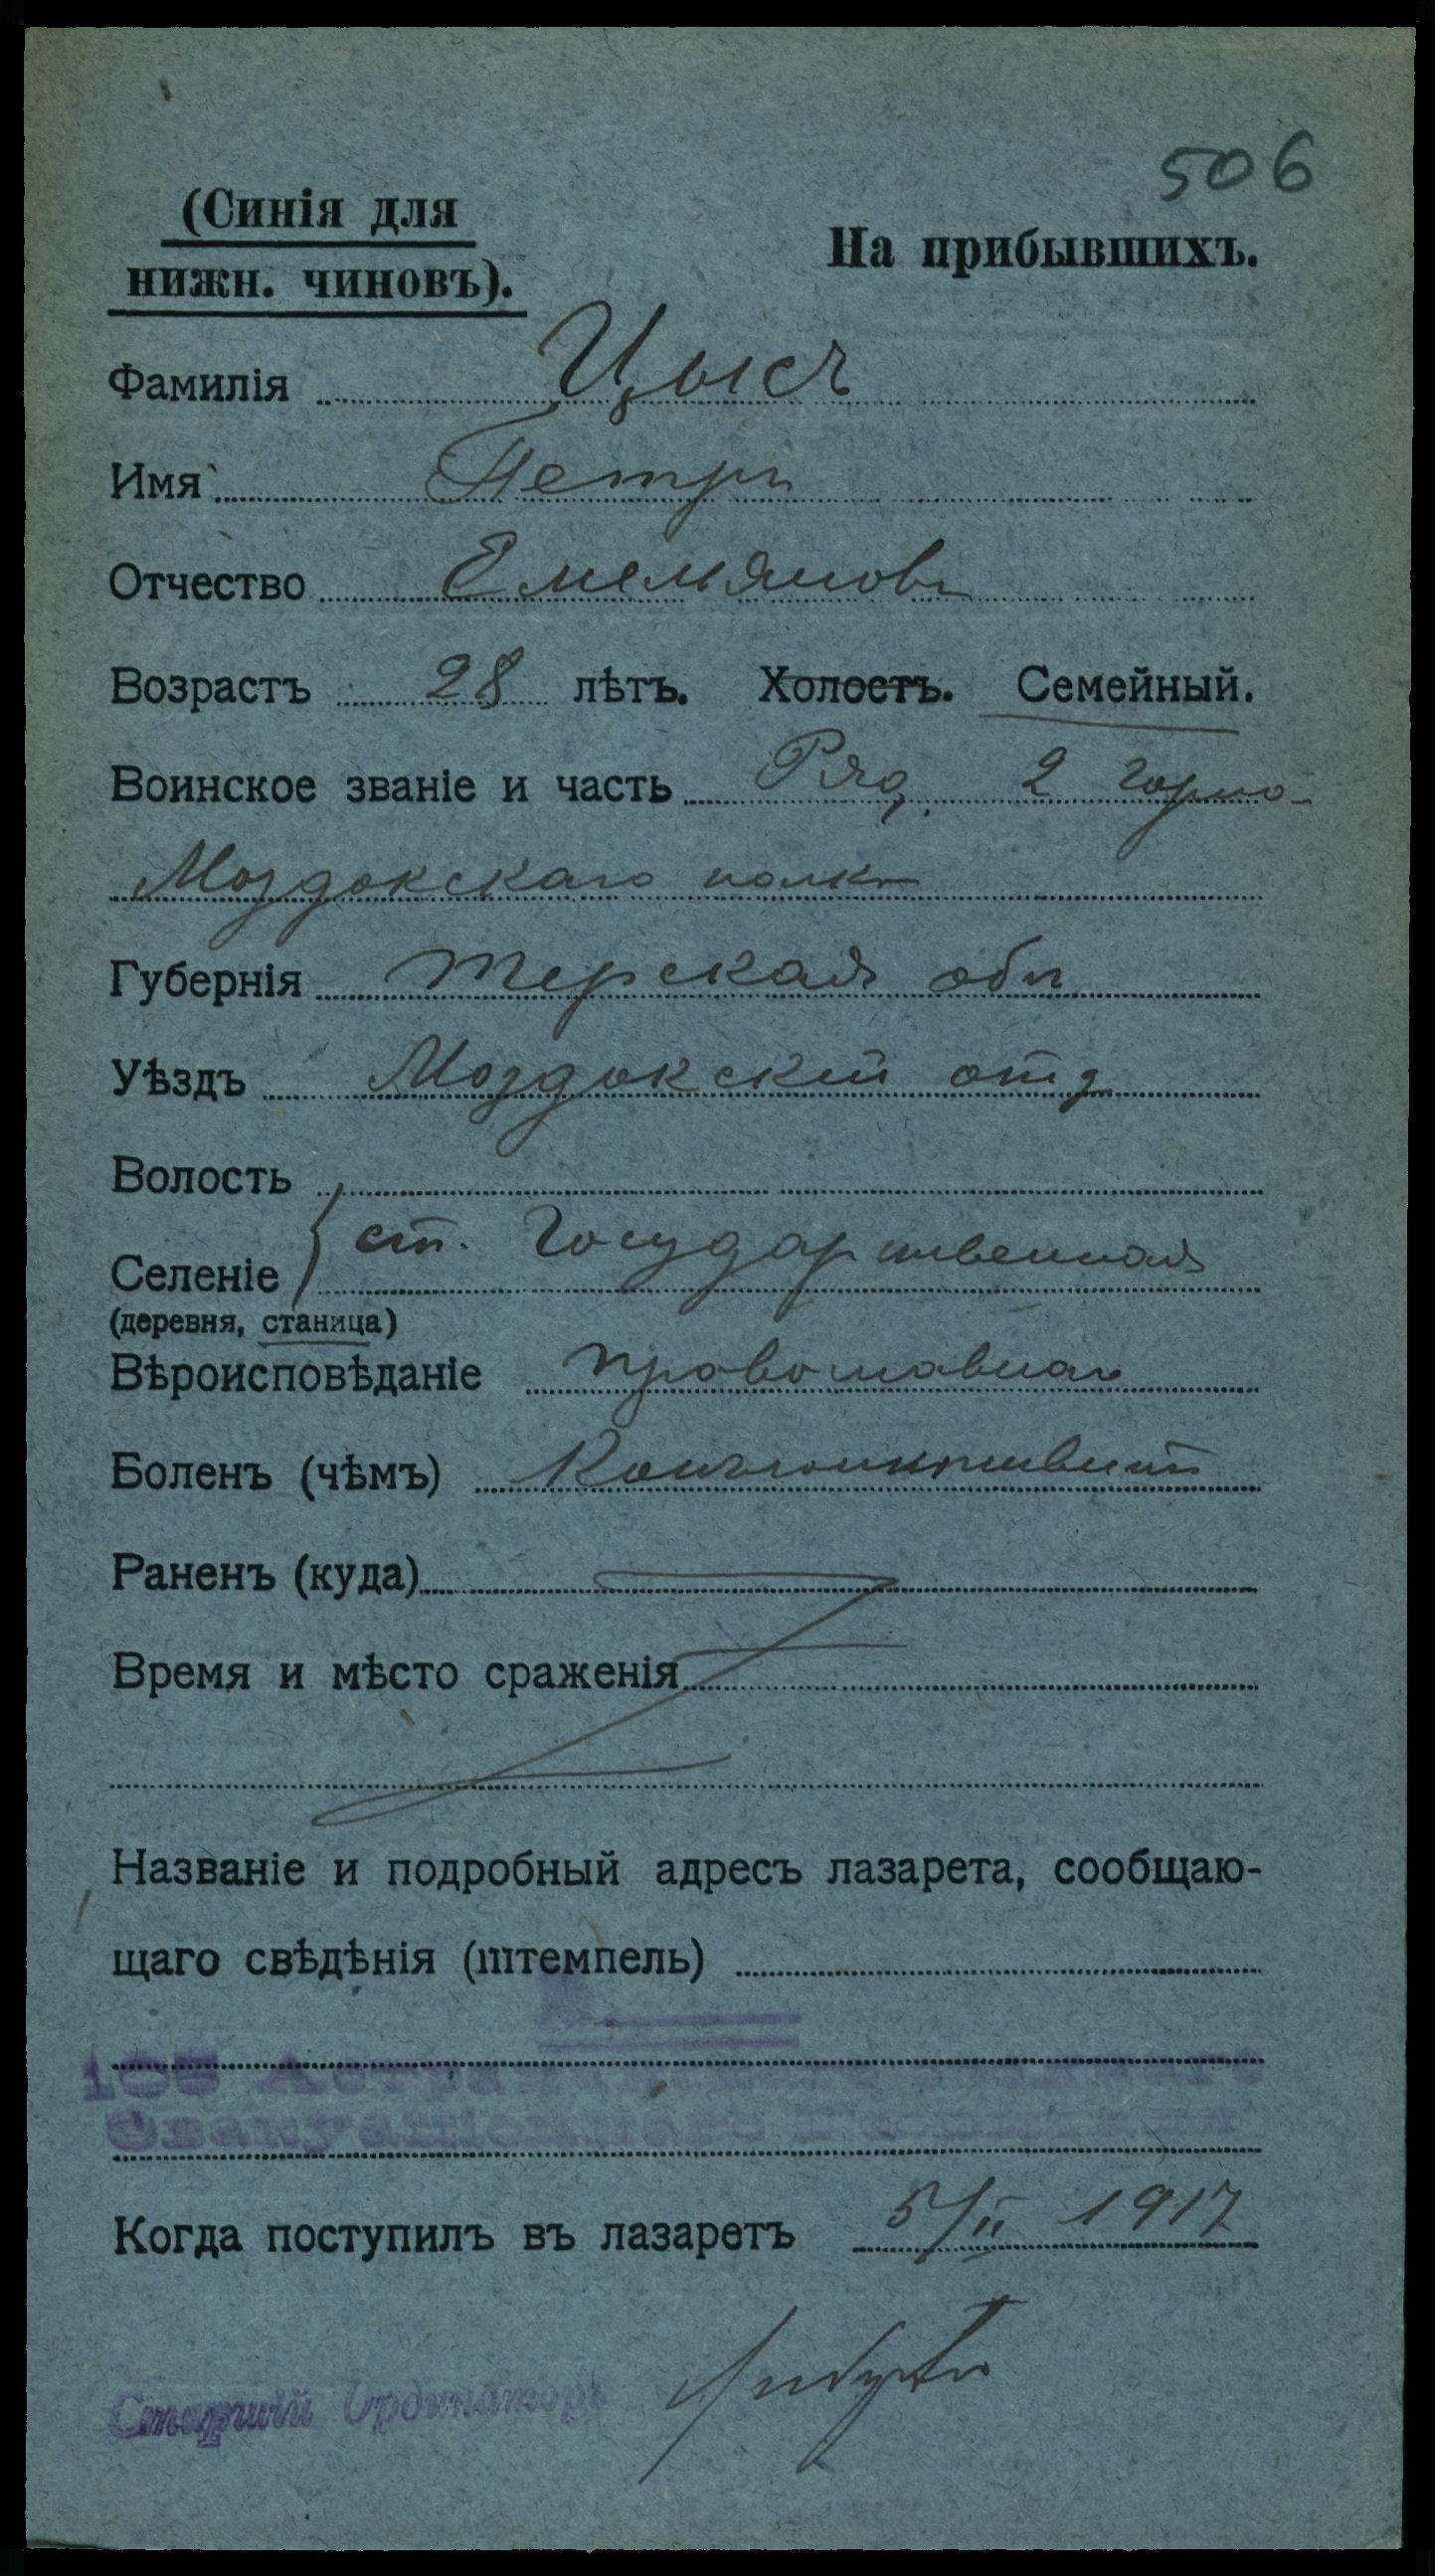 506
(Синія для
нижн. чиновъ).
На прибывшихъ.
Фамилія Цысь
Имя Петръ
Отчество Емельяновъ
Возрастъ 28 лѣтъ. Холостъ. Семейный.
Воинское званіе и часть Ряд. 2 Горно-
Моздокскаго полка
Губернія Терская обл
Уѣздъ Моздокскій отд
Волость
ст. Государственная
Селеніе
(деревня, станица)
Вѣроисповѣданіе православная
Боленъ (чѣмъ) Конъюнктивитъ
Раненъ (куда)
Время и мѣсто сраженія
Названіе и подробный адресъ лазарета, сообщаю-
щаго свѣдѣнія (штемпель)
105
Эвакуаціоннаго
Когда поступилъ въ лазаретъ 5/II 1917
Старшій Ординаторъ